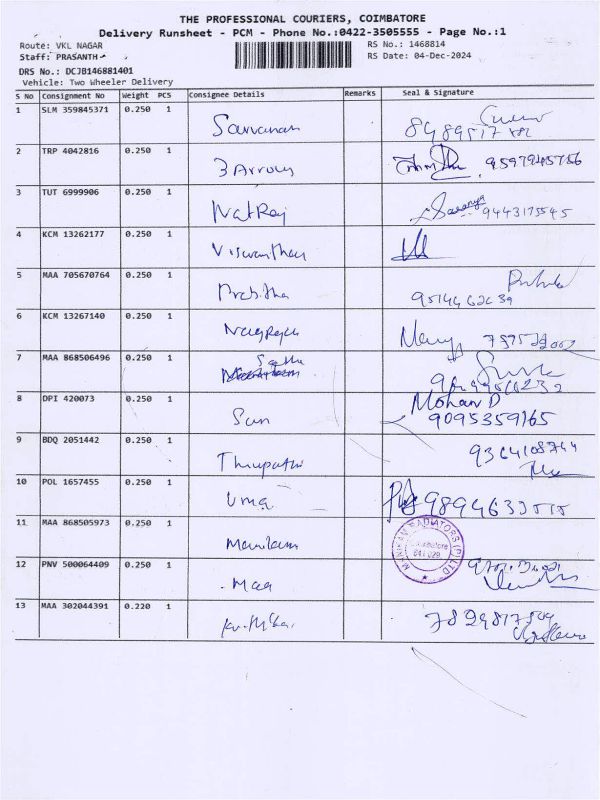 THE PROFESSIONAL COURIERS, COIMBATORE
Delivery Runsheet - PCM - Phone No.:0422-3505555 - Page No.:1
Route: VKL NAGAR RS No.: 1468814
Staff: PRASANTH- RS Date: 04-Dec-2024
DRS No.: DCJB146881401
Vehicle: Two Wheeler Delivery
S No Consignment No Weight PCS Consignee Details Remarks Seal & Signature
1 SLM 359845371 0.250 1 Sarvanan
2 TRP 4042816 0.250 1 3 Arrows
3 TUT 6999906 0.250 1 NatRaj Saranya 9443175545
4 KCM 13262177 0.250 1 Viswanthan
5 MAA 705670764 0.250 1 Prabitha
6 KCM 13267140 0.250 1 Nagraja
7 MAA 868506496 0.250 1
8 DPI 420073 0.250 1 Sun Mohan D
9095359165
9 BDQ 2051442 0.250 1 Thirupathi 9364108744
10 POL 1657455 0.250 1 Uma
11 MAA 868505973 0.250 1 Manikam MANIKAM RADIATORS (P) LTD
Coimbatore
641 029.
12 PNV 500064409 0.250 1 Maa
13 MAA 302044391 0.220 1